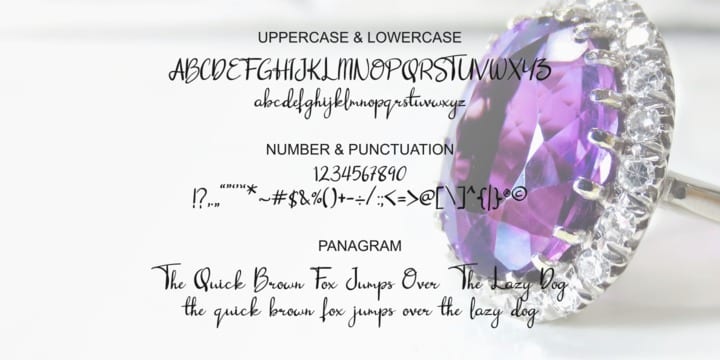 UPPERCASE & LOWERCASE
ABCDEFGHIJKLMNOPQRSTUVWXYZ
abcdefghijklmnopqrstuvwxyz
NUMBER & PUNCTUATION
1234567890
!?,.„“”‘’“*~#$&%()+-÷/:;<=>@[\]^{|}®©
PANAGRAM
The Quick Brown Fox Jumps Over The Lazy Dog
the quick brown fox jumps over the lazy dog